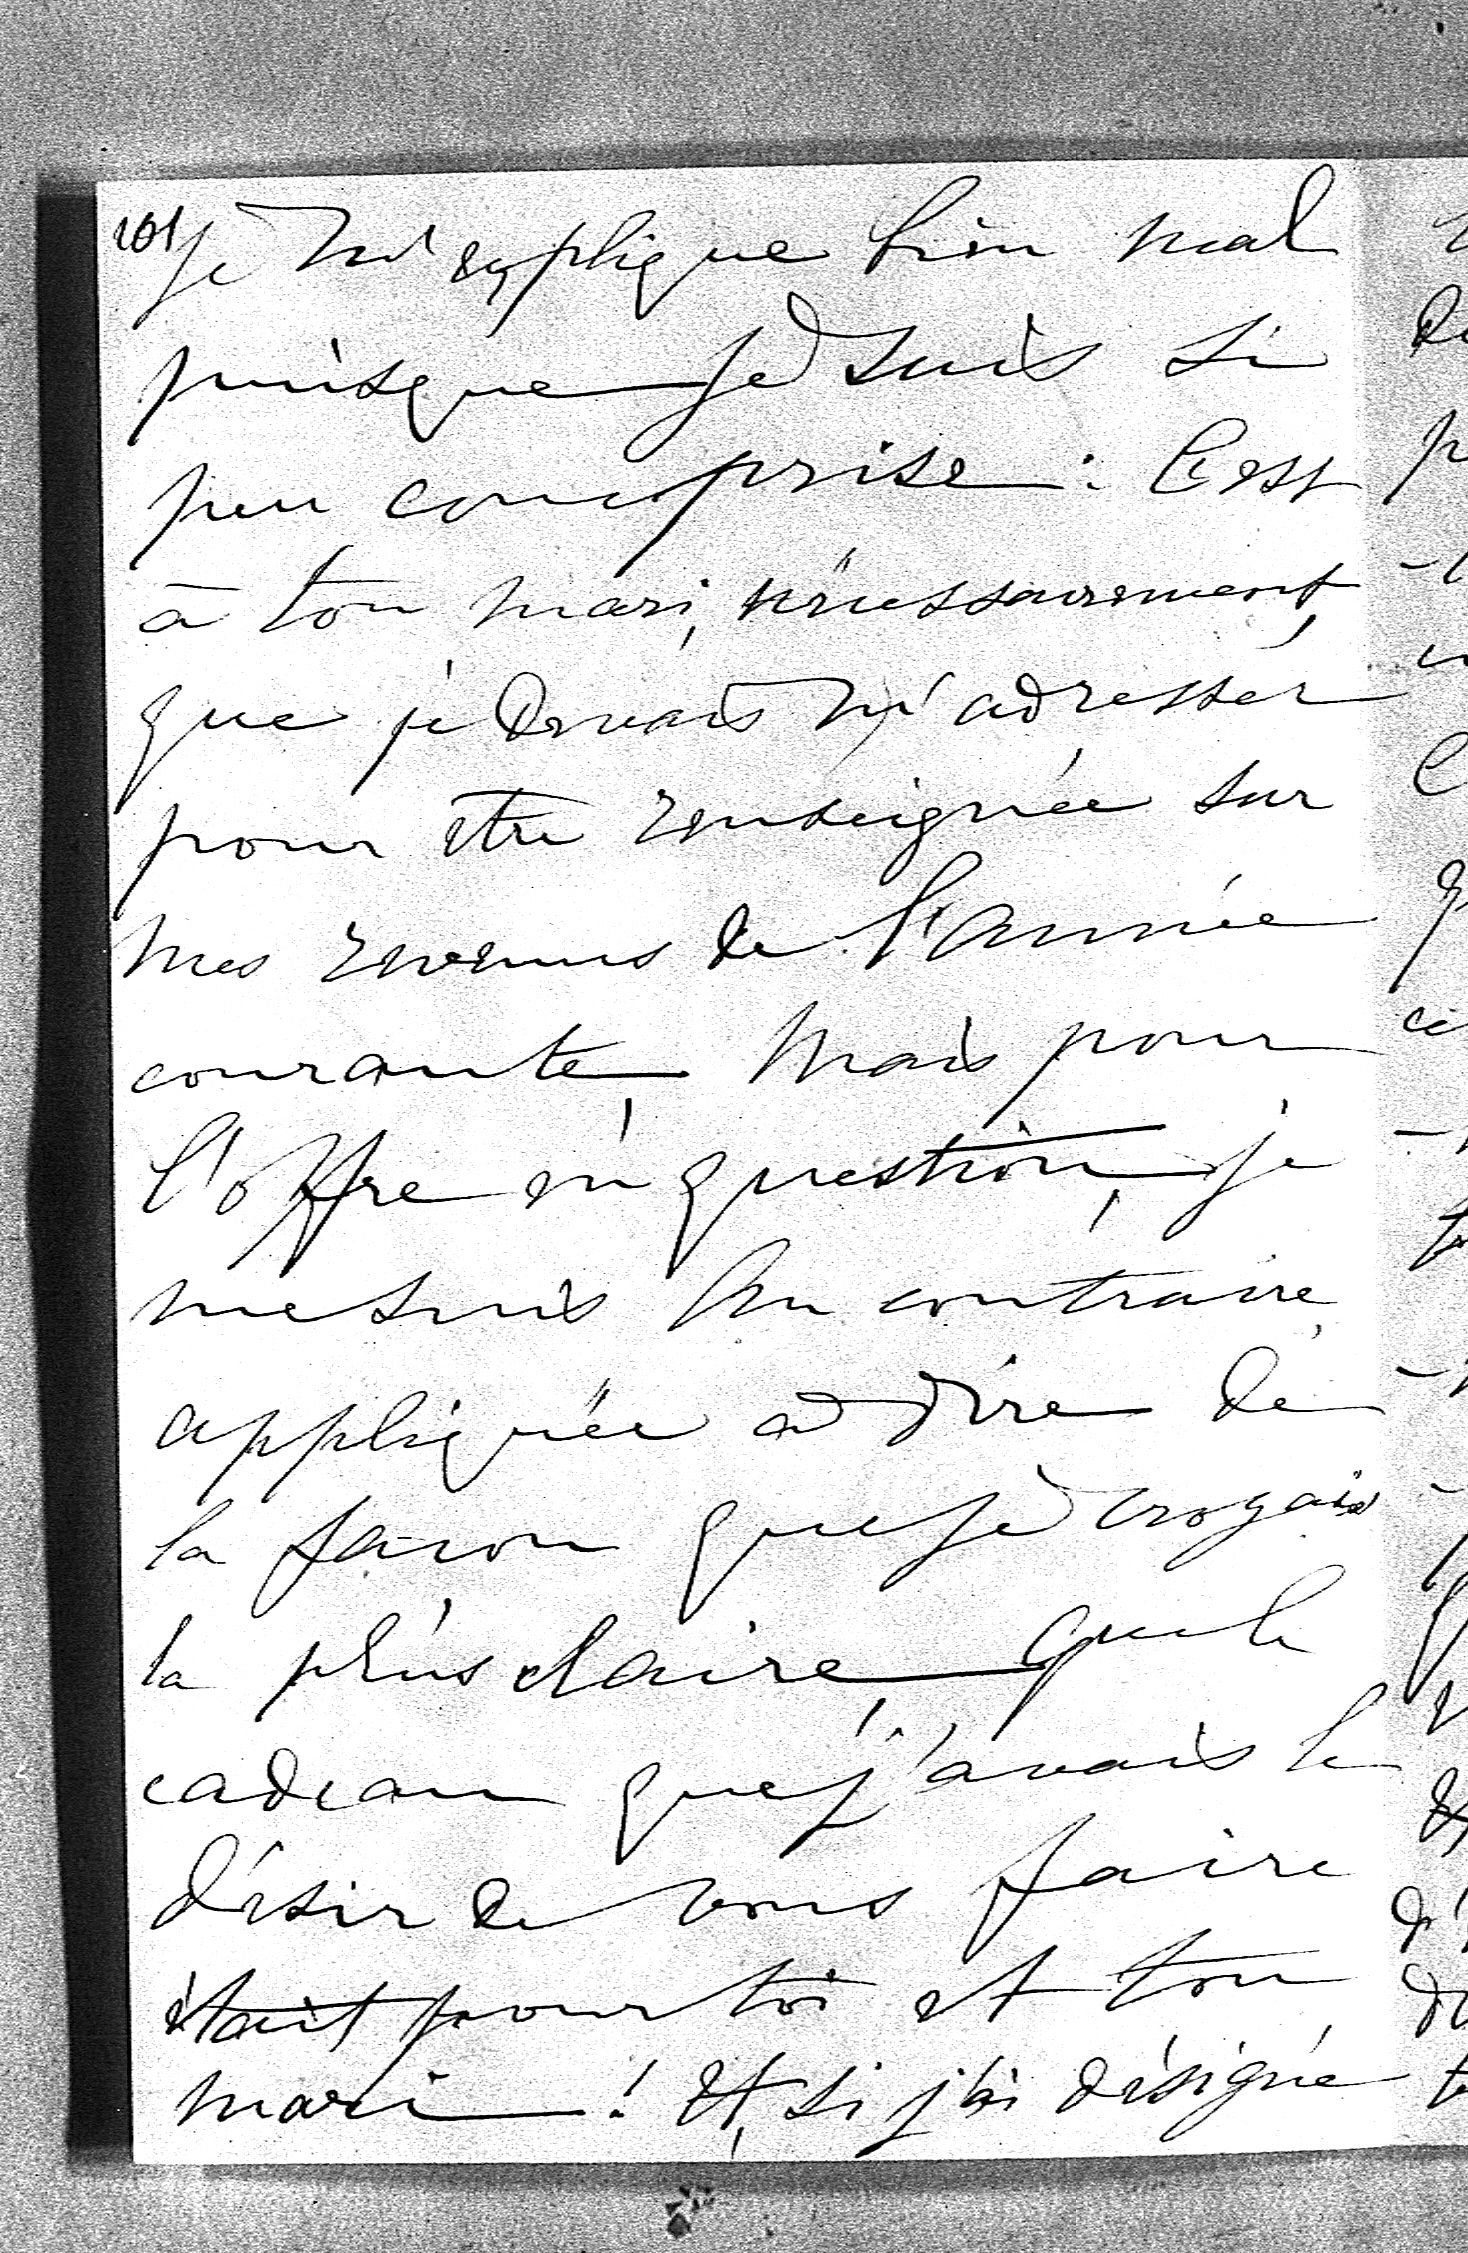 101 Je m'explique bien mal
puisque je suis si
peu comprise : C'est
à ton mari, nécessairement,
que je devais m'adresser
pour être renseignée sur
mes revenus de l'année
courante, Mais pour
l'offre en question, je
me suis au contraire,
appliquée à dire de
la façon que je croyais
la plus claire, que le
cadeau que j'avais le
désir de vous faire
était pour toi et ton
mari ! Et, si j'ai désigné